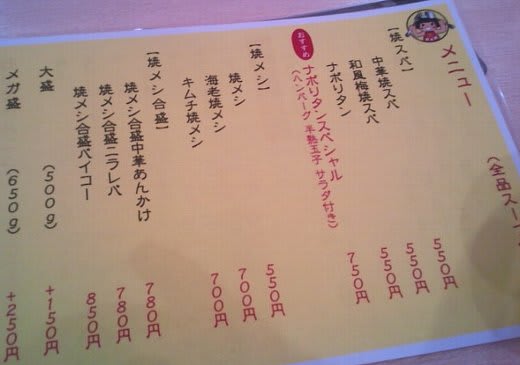 メニュー (全品スー
【焼スパ】
中華焼スパ 550円
和風梅焼スパ 550円
ナポリタン 550円
おすすめ
ナポリタンスペシャル 750円
(ハンバーグ 半熟玉子 サラダ付き)
【焼メシ】
焼メシ 550円
海老焼メシ 700円
キムチ焼メシ 700円
【焼メシ合盛】
焼メシ合盛中華あんかけ 780円
焼メシ合盛ニラレバ 780円
焼メシ合盛パイコー 850円
大盛 (500g) +150円
メガ盛 (650g) +250円